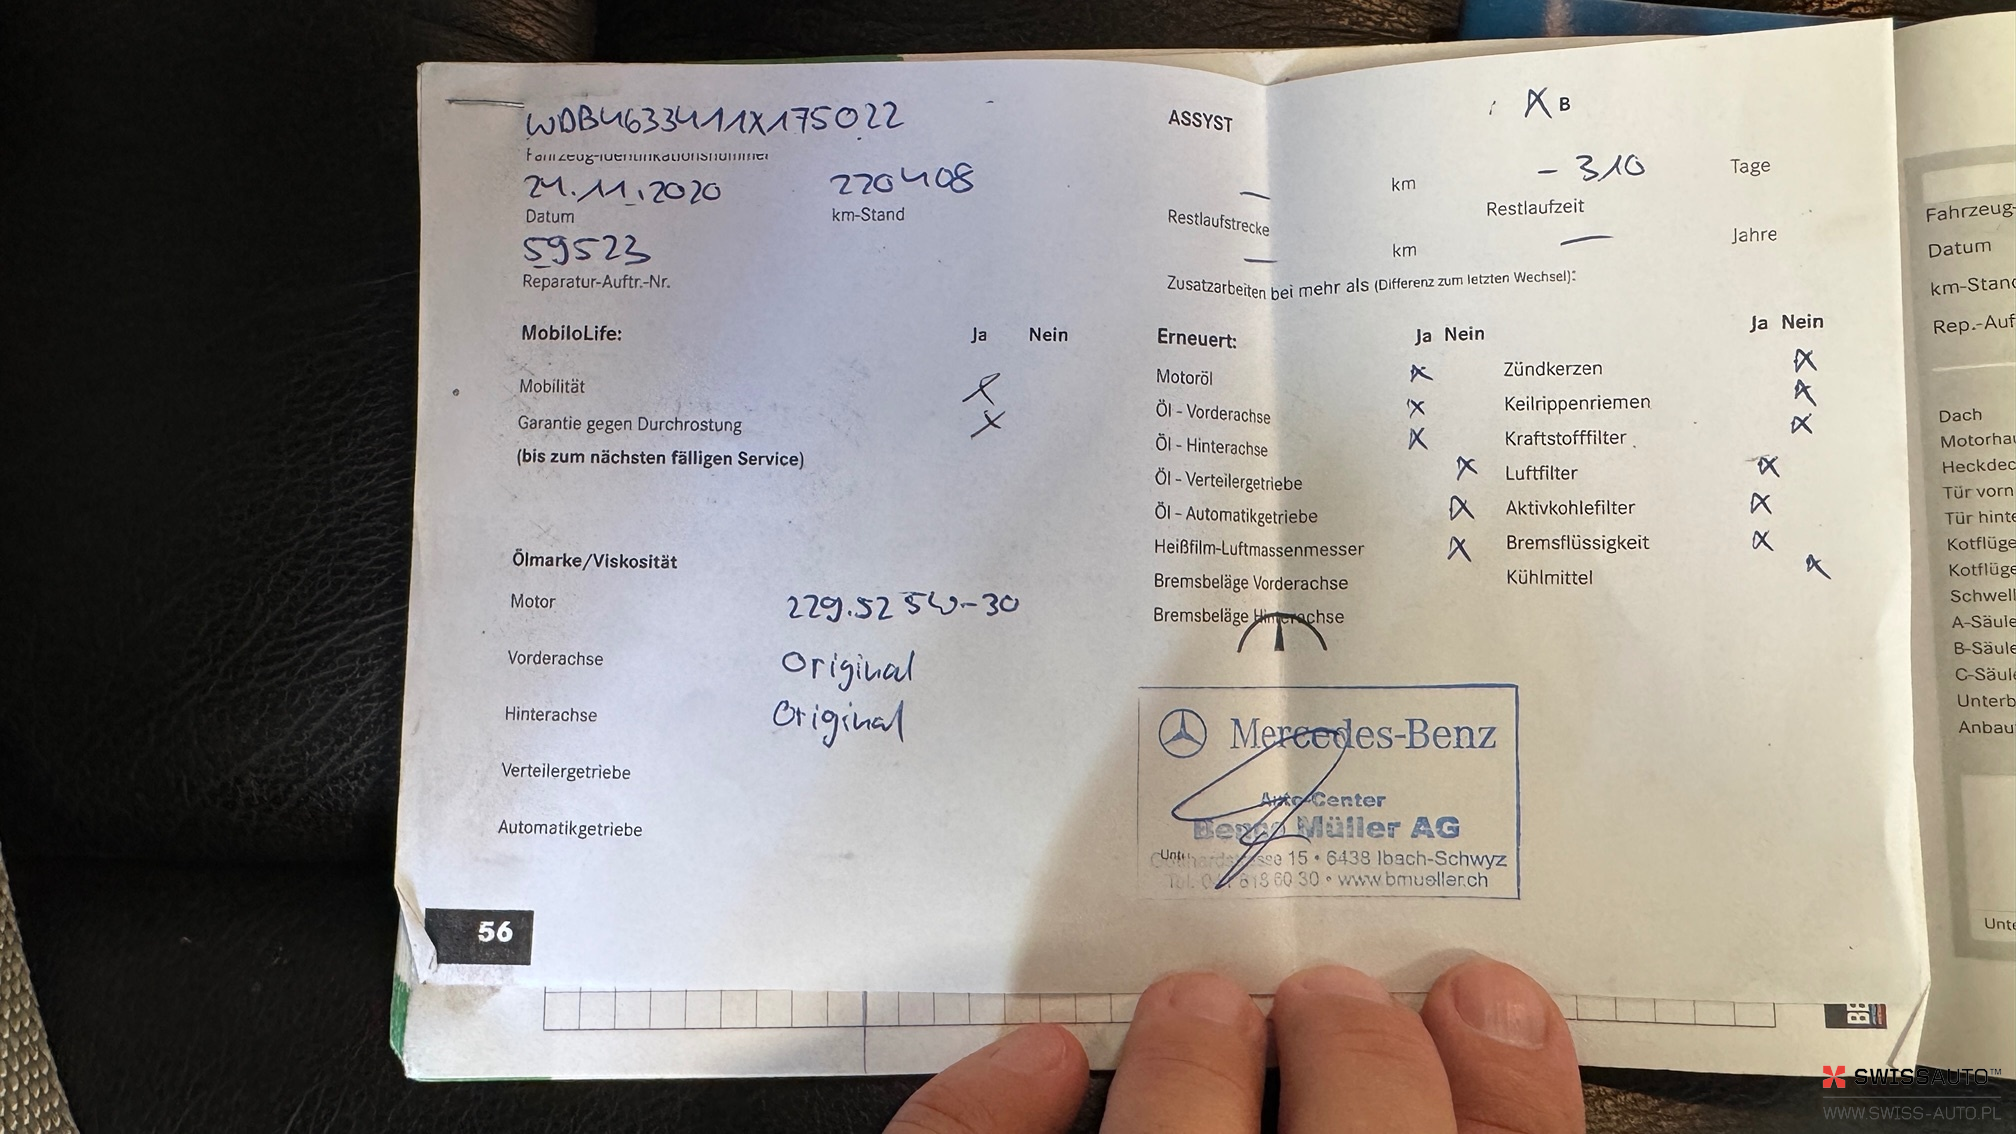 WDB4633411X175022
Fahrzeug-Identifikationsnummer
24.11.2020 220408
Datum km-Stand
59523
Reparatur-Auftr.-Nr.
MobiloLife: Ja Nein
Mobilität X
Garantie gegen Durchrostung X
(bis zum nächsten fälligen Service)
Ölmarke/Viskosität
Motor 229.52 5W-30
Vorderachse Original
Hinterachse Original
Verteilergetriebe
Automatikgetriebe
56
ASSYST X B
— km - 310 Tage
Restlaufstrecke Restlaufzeit
— km — Jahre
Zusatzarbeiten bei mehr als (Differenz zum letzten Wechsel):
Erneuert: Ja Nein Ja Nein
Motoröl X Zündkerzen X
Öl - Vorderachse X Keilrippenriemen X
Öl - Hinterachse X Kraftstofffilter X
Öl - Verteilergetriebe X Luftfilter X
Öl - Automatikgetriebe X Aktivkohlefilter X
Heißfilm-Luftmassenmesser X Bremsflüssigkeit X
Bremsbeläge Vorderachse Kühlmittel X
Bremsbeläge Hinterachse
Mercedes-Benz
Auto-Center
Müller AG
15 • 6438 Ibach-Schwyz
60 30 • www.bmueller.ch
Fahrzeug-
Datum
km-Stand
Rep.-Auf
Dach
Motorhau
Heckdec
Tür vorn
Tür hinte
Kotflüge
Kotflüge
Schwell
A-Säule
B-Säule
C-Säule
Unterb
Anbau
Unte
SWISSAUTO™
WWW.SWISS-AUTO.PL